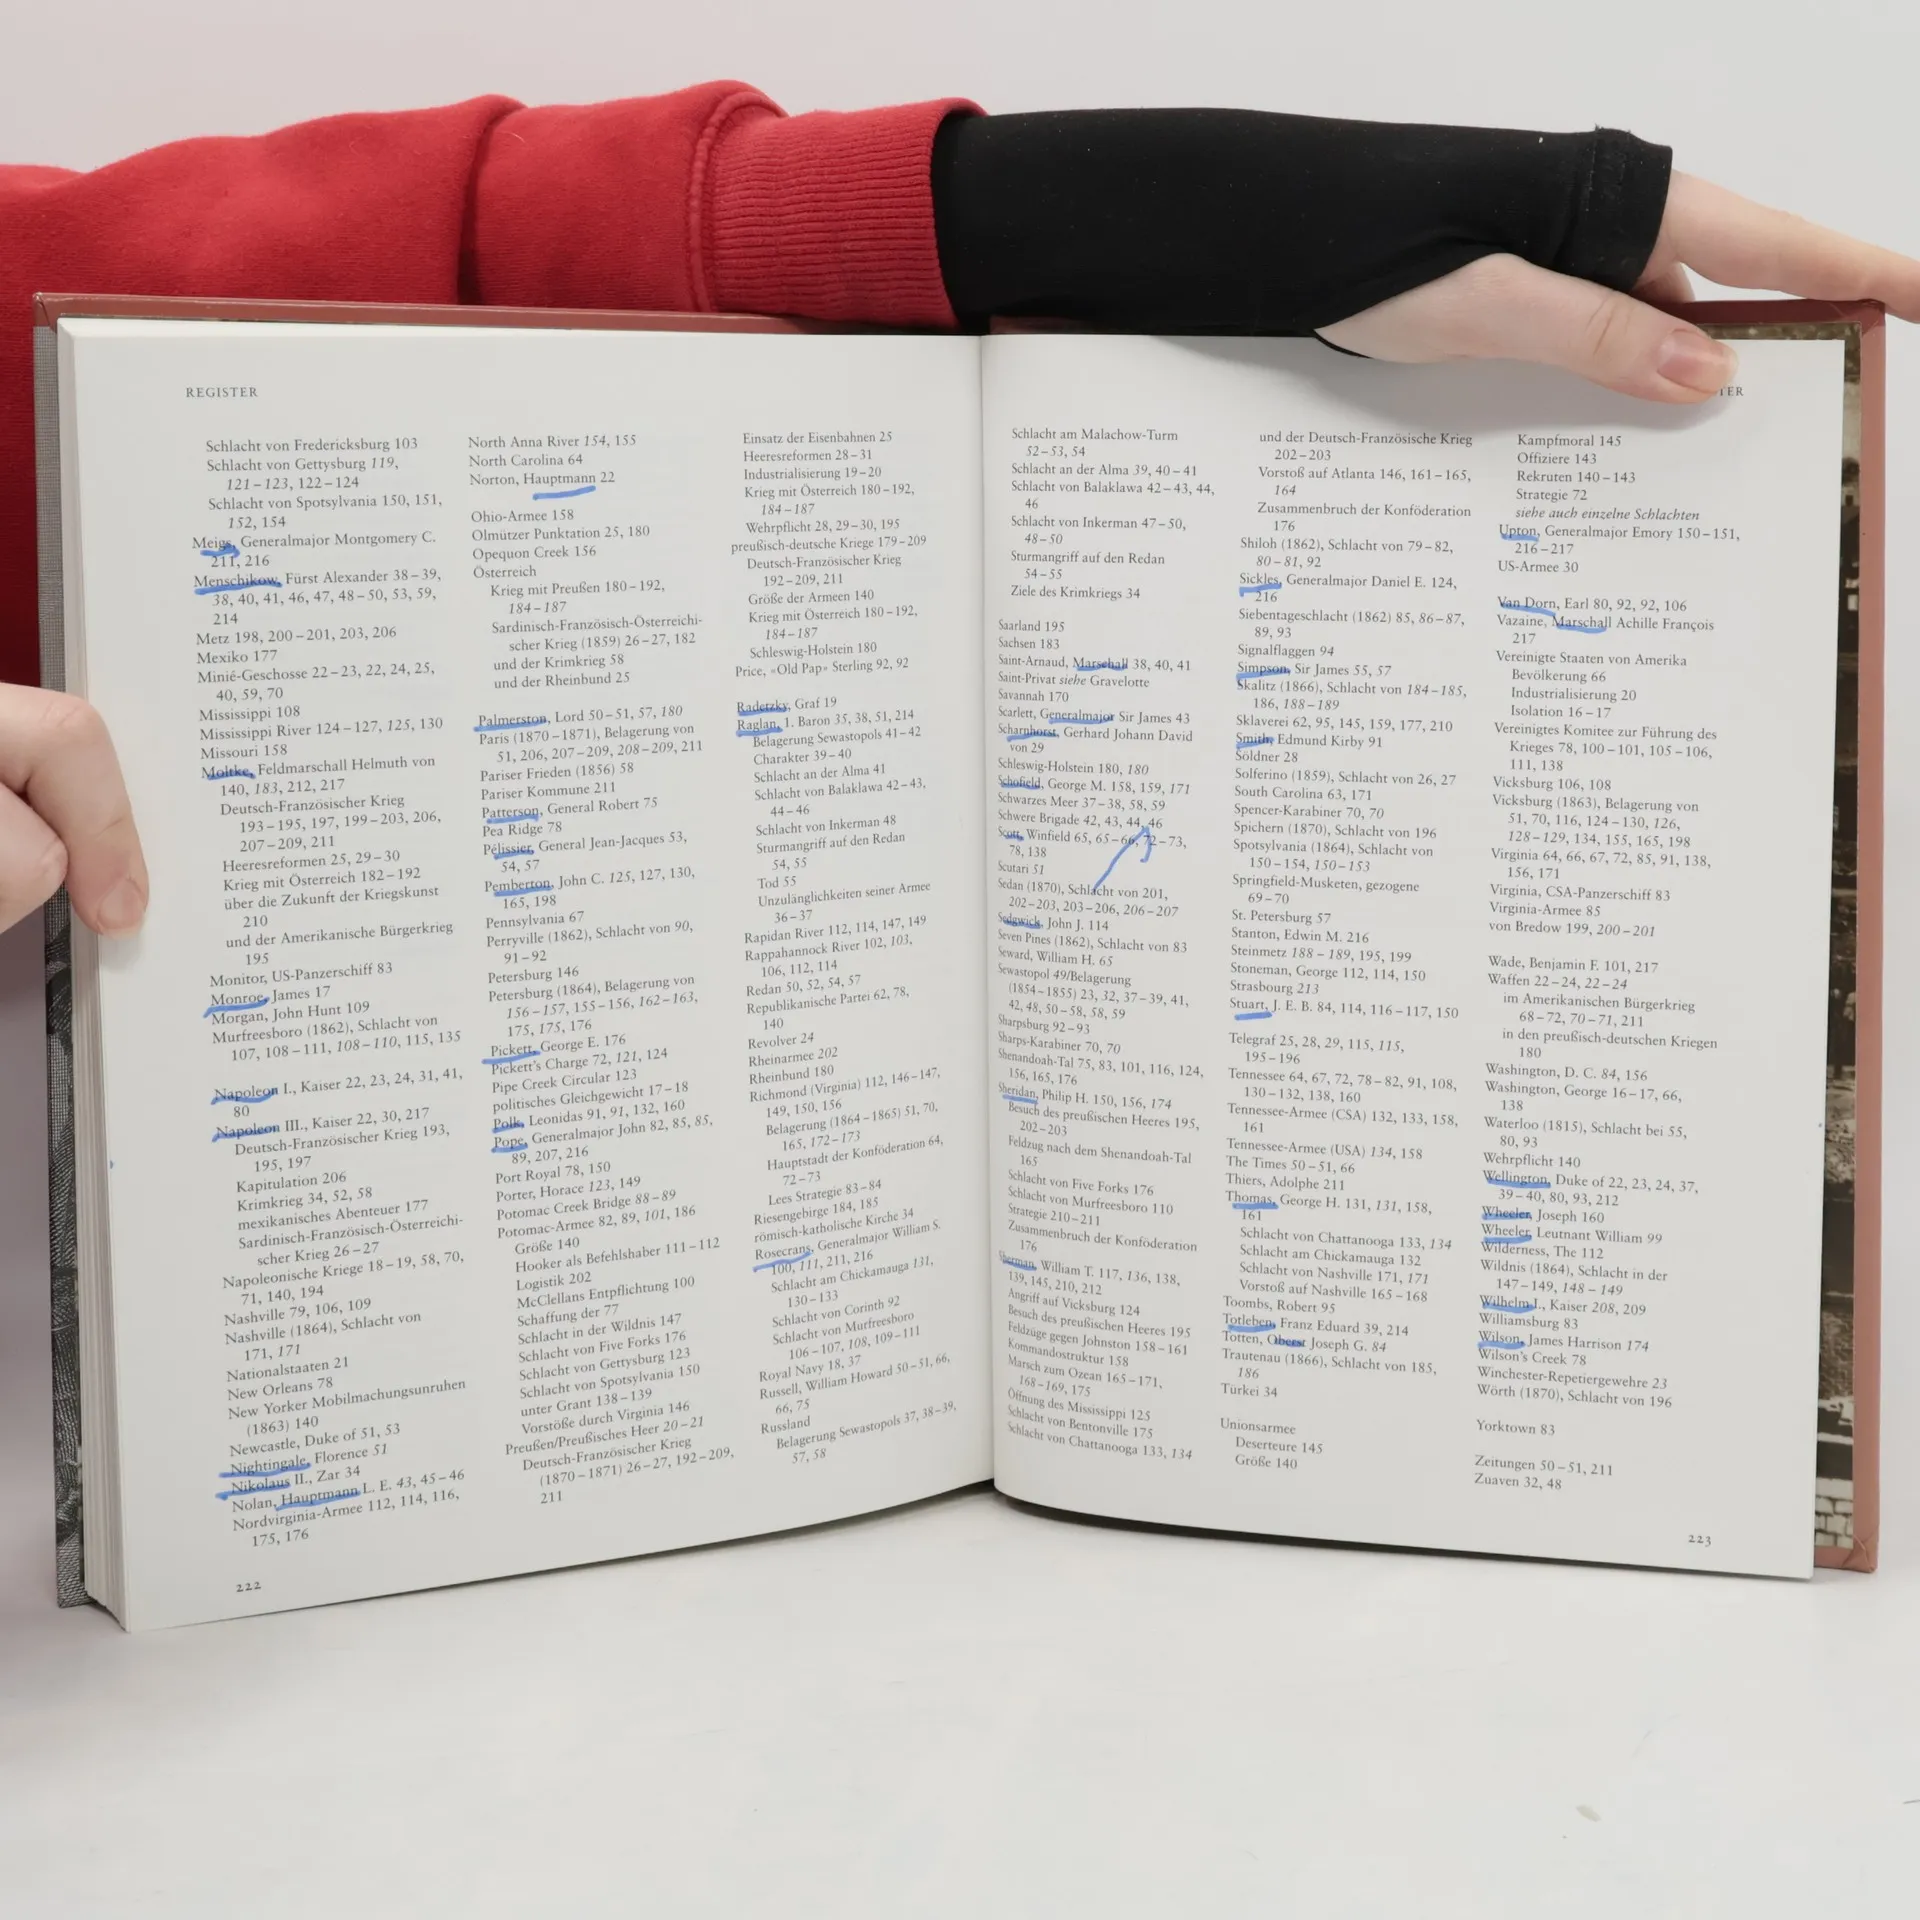 REGISTER
Schlacht von Fredericksburg 103
Schlacht von Gettysburg 119,
121–123, 122–124
Schlacht von Spotsylvania 150, 151,
152, 154
Meigs, Generalmajor Montgomery C.
211, 216
Menschikow, Fürst Alexander 38–39,
38, 40, 41, 46, 47, 48–50, 53, 59,
214
Metz 198, 200–201, 203, 206
Mexiko 177
Minié-Geschosse 22–23, 22, 24, 25,
40, 59, 70
Mississippi 108
Mississippi River 124–127, 125, 130
Missouri 158
Moltke, Feldmarschall Helmuth von
140, 183, 212, 217
Deutsch-Französischer Krieg
193–195, 197, 199–203, 206,
207–209, 211
Heeresreformen 25, 29–30
Krieg mit Österreich 182–192
über die Zukunft der Kriegskunst
210
und der Amerikanische Bürgerkrieg
195
Monitor, US-Panzerschiff 83
Monroe, James 17
Morgan, John Hunt 109
Murfreesboro (1862), Schlacht von
107, 108–111, 108–110, 115, 135
Napoleon I., Kaiser 22, 23, 24, 31, 41,
80
Napoleon III., Kaiser 22, 30, 217
Deutsch-Französischer Krieg 193,
195, 197
Kapitulation 206
Krimkrieg 34, 52, 58
mexikanisches Abenteuer 177
Sardinisch-Französisch-Österreichi-
scher Krieg 26–27
Napoleonische Kriege 18–19, 58, 70,
71, 140, 194
Nashville 79, 106, 109
Nashville (1864), Schlacht von
171, 171
Nationalstaaten 21
New Orleans 78
New Yorker Mobilmachungsunruhen
(1863) 140
Newcastle, Duke of 51, 53
Nightingale, Florence 51
Nikolaus II., Zar 34
Nolan, Hauptmann L. E. 43, 45–46
Nordvirginia-Armee 112, 114, 116,
175, 176
North Anna River 154, 155
North Carolina 64
Norton, Hauptmann 22
Ohio-Armee 158
Olmützer Punktation 25, 180
Opequon Creek 156
Österreich
Krieg mit Preußen 180–192,
184–187
Sardinisch-Französisch-Österreichi-
scher Krieg (1859) 26–27, 182
und der Krimkrieg 58
und der Rheinbund 25
Palmerston, Lord 50–51, 57, 180
Paris (1870–1871), Belagerung von
51, 206, 207–209, 208–209, 211
Pariser Frieden (1856) 58
Pariser Kommune 211
Patterson, General Robert 75
Pea Ridge 78
Pélissier, General Jean-Jacques 53,
54, 57
Pemberton, John C. 125, 127, 130,
165, 198
Pennsylvania 67
Perryville (1862), Schlacht von 90,
91–92
Petersburg 146
Petersburg (1864), Belagerung von
156–157, 155–156, 162–163,
175, 175, 176
Pickett, George E. 176
Pickett's Charge 72, 121, 124
Pipe Creek Circular 123
politisches Gleichgewicht 17–18
Polk, Leonidas 91, 91, 132, 160
Pope, Generalmajor John 82, 85, 85,
89, 207, 216
Port Royal 78, 150
Porter, Horace 123, 149
Potomac Creek Bridge 88–89
Potomac-Armee 82, 89, 101, 186
Größe 140
Hooker als Befehlshaber 111–112
Logistik 202
McClellans Entpflichtung 100
Schaffung der 77
Schlacht in der Wildnis 147
Schlacht von Five Forks 176
Schlacht von Gettysburg 123
Schlacht von Spotsylvania 150
unter Grant 138–139
Vorstöße durch Virginia 146
Preußen/Preußisches Heer 20–21
Deutsch-Französischer Krieg
(1870–1871) 26–27, 192–209,
211
Einsatz der Eisenbahnen 25
Heeresreformen 28–31
Industrialisierung 19–20
Krieg mit Österreich 180–192,
184–187
Wehrpflicht 28, 29–30, 195
preußisch-deutsche Kriege 179–209
Deutsch-Französischer Krieg
192–209, 211
Größe der Armeen 140
Krieg mit Österreich 180–192,
184–187
Schleswig-Holstein 180
Price, »Old Pap« Sterling 92, 92
Radetzky, Graf 19
Raglan, 1. Baron 35, 38, 51, 214
Belagerung Sewastopols 41–42
Charakter 39–40
Schlacht an der Alma 41
Schlacht von Balaklawa 42–43,
44–46
Schlacht von Inkerman 48
Sturmangriff auf den Redan
54, 55
Tod 55
Unzulänglichkeiten seiner Armee
36–37
Rapidan River 112, 114, 147, 149
Rappahannock River 102, 103,
106, 112, 114
Redan 50, 52, 54, 57
Republikanische Partei 62, 78,
140
Revolver 24
Rheinarmee 202
Rheinbund 180
Richmond (Virginia) 112, 146–147,
149, 150, 156
Belagerung (1864–1865) 51, 70,
165, 172–173
Hauptstadt der Konföderation 64,
72–73
Lees Strategie 83–84
Riesengebirge 184, 185
römisch-katholische Kirche 34
Rosecrans, Generalmajor William S.
100, 111, 211, 216
Schlacht am Chickamauga 131,
130–133
Schlacht von Corinth 92
Schlacht von Murfreesboro
106–107, 108, 109–111
Royal Navy 18, 37
Russell, William Howard 50–51, 66,
66, 75
Russland
Belagerung Sewastopols 37, 38–39,
57, 58
222
TER
Schlacht am Malachow-Turm
52–53, 54
Schlacht an der Alma 39, 40–41
Schlacht von Balaklawa 42–43, 44,
46
Schlacht von Inkerman 47–50,
48–50
Sturmangriff auf den Redan
54–55
Ziele des Krimkriegs 34
Saarland 195
Sachsen 183
Saint-Arnaud, Marschall 38, 40, 41
Saint-Privat siehe Gravelotte
Savannah 170
Scarlett, Generalmajor Sir James 43
Scharnhorst, Gerhard Johann David
von 29
Schleswig-Holstein 180, 180
Schofield, George M. 158, 159, 171
Schwarzes Meer 37–38, 58, 59
Schwere Brigade 42, 43, 44, 46
Scott, Winfield 65, 65–66, 72–73,
78, 138
Scutari 51
Sedan (1870), Schlacht von 201,
202–203, 203–206, 206–207
Sedgwick, John J. 114
Seven Pines (1862), Schlacht von 83
Seward, William H. 65
Sewastopol 49/Belagerung
(1854–1855) 23, 32, 37–39, 41,
42, 48, 50–58, 58, 59
Sharpsburg 92–93
Sharps-Karabiner 70, 70
Shenandoah-Tal 75, 83, 101, 116, 124,
156, 165, 176
Sheridan, Philip H. 150, 156, 174
Besuch des preußischen Heeres 195,
202–203
Feldzug nach dem Shenandoah-Tal
165
Schlacht von Five Forks 176
Schlacht von Murfreesboro 110
Strategie 210–211
Zusammenbruch der Konföderation
176
Sherman, William T. 117, 136, 138,
139, 145, 210, 212
Angriff auf Vicksburg 124
Besuch des preußischen Heeres 195
Feldzüge gegen Johnston 158–161
Kommandostruktur 158
Marsch zum Ozean 165–171,
168–169, 175
Öffnung des Mississippi 125
Schlacht von Bentonville 175
Schlacht von Chattanooga 133, 134
und der Deutsch-Französische Krieg
202–203
Vorstoß auf Atlanta 146, 161–165,
164
Zusammenbruch der Konföderation
176
Shiloh (1862), Schlacht von 79–82,
80–81, 92
Sickles, Generalmajor Daniel E. 124,
216
Siebentageschlacht (1862) 85, 86–87,
89, 93
Signalflaggen 94
Simpson, Sir James 55, 57
Skalitz (1866), Schlacht von 184–185,
186, 188–189
Sklaverei 62, 95, 145, 159, 177, 210
Smith, Edmund Kirby 91
Söldner 28
Solferino (1859), Schlacht von 26, 27
South Carolina 63, 171
Spencer-Karabiner 70, 70
Spichern (1870), Schlacht von 196
Spotsylvania (1864), Schlacht von
150–154, 150–153
Springfield-Musketen, gezogene
69–70
St. Petersburg 57
Stanton, Edwin M. 216
Steinmetz 188–189, 195, 199
Stoneman, George 112, 114, 150
Strasbourg 213
Stuart, J. E. B. 84, 114, 116–117, 150
Telegraf 25, 28, 29, 115, 115,
195–196
Tennessee 64, 67, 72, 78–82, 91, 108,
130–132, 138, 160
Tennessee-Armee (CSA) 132, 133, 158,
161
Tennessee-Armee (USA) 134, 158
The Times 50–51, 66
Thiers, Adolphe 211
Thomas, George H. 131, 131, 158,
161
Schlacht von Chattanooga 133, 134
Schlacht am Chickamauga 132
Schlacht von Nashville 171, 171
Vorstoß auf Nashville 165–168
Toombs, Robert 95
Totleben, Franz Eduard 39, 214
Totten, Oberst Joseph G. 84
Trautenau (1866), Schlacht von 185,
186
Türkei 34
Unionsarmee
Deserteure 145
Größe 140
Kampfmoral 145
Offiziere 143
Rekruten 140–143
Strategie 72
siehe auch einzelne Schlachten
Upton, Generalmajor Emory 150–151,
216–217
US-Armee 30
Van Dorn, Earl 80, 92, 92, 106
Vazaine, Marschall Achille François
217
Vereinigte Staaten von Amerika
Bevölkerung 66
Industrialisierung 20
Isolation 16–17
Vereinigtes Komitee zur Führung des
Krieges 78, 100–101, 105–106,
111, 138
Vicksburg 106, 108
Vicksburg (1863), Belagerung von
51, 70, 116, 124–130, 126,
128–129, 134, 155, 165, 198
Virginia 64, 66, 67, 72, 85, 91, 138,
156, 171
Virginia, CSA-Panzerschiff 83
Virginia-Armee 85
von Bredow 199, 200–201
Wade, Benjamin F. 101, 217
Waffen 22–24, 22–24
im Amerikanischen Bürgerkrieg
68–72, 70–71, 211
in den preußisch-deutschen Kriegen
180
Washington, D. C. 84, 156
Washington, George 16–17, 66,
138
Waterloo (1815), Schlacht bei 55,
80, 93
Wehrpflicht 140
Wellington, Duke of 22, 23, 24, 37,
39–40, 80, 93, 212
Wheeler, Joseph 160
Wheeler, Leutnant William 99
Wilderness, The 112
Wildnis (1864), Schlacht in der
147–149, 148–149
Wilhelm I., Kaiser 208, 209
Williamsburg 83
Wilson, James Harrison 174
Wilson's Creek 78
Winchester-Repetiergewehre 23
Wörth (1870), Schlacht von 196
Yorktown 83
Zeitungen 50–51, 211
Zuaven 32, 48
223